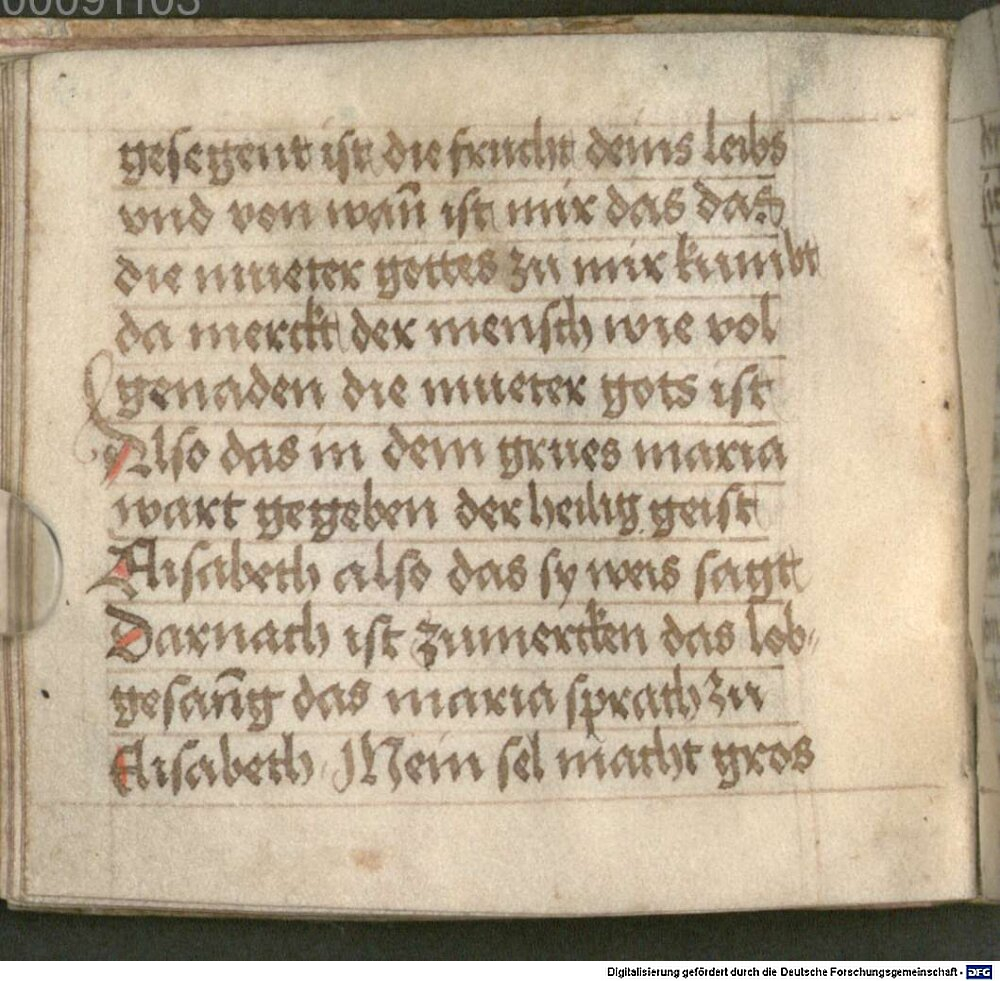 00091103
gesegent ist die frucht deins leibs
vnd von wañ ist mir das das
die mueter gottes zu mir kumbt
da merckt der mensch wie vol
genaden die mueter gots ist
Also das in dem grues maria
wart gegeben der heilig geist
Elisabeth also das sy weis sagt
Darnach ist zumercken das lob-
gesañg das maria sprach zu
Elisabeth Mein sel macht gros
Digitalisierung gefördert durch die Deutsche Forschungsgemeinschaft - DFG